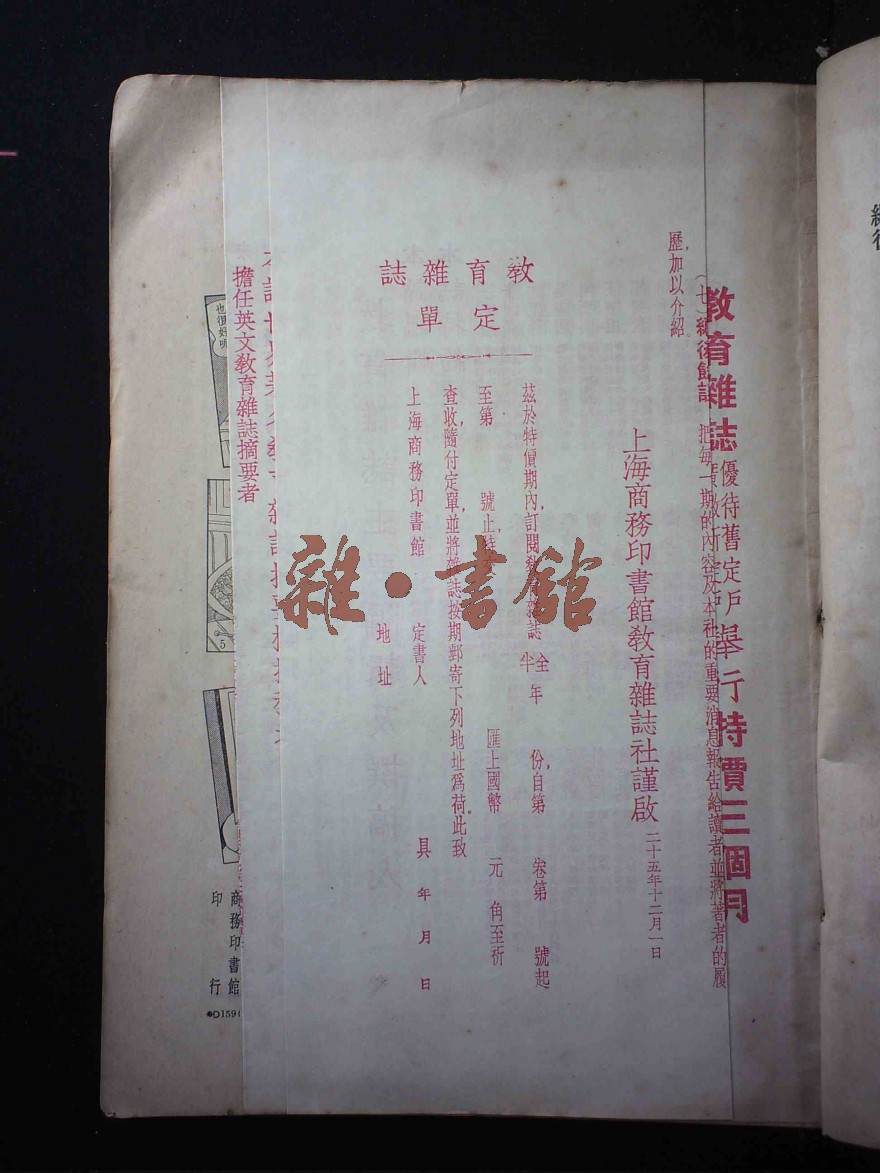 教育雜誌優待舊定戶舉行特價三個月
（七）編後餘話　把每一期的內容及本社的重要消息報告給讀者並將著者的履
歷，加以介紹。
上海商務印書館教育雜誌社謹啟　二十五年十二月一日
教育雜誌
定單
茲於特價期內，訂閱教育雜誌全半年　份，自第　卷第　號起
至第　號止，　匯上國幣　元　角至祈
查收，隨付定單，並將雜誌按期郵寄下列地址爲荷。此致
上海商務印書館　定書人　具　年　月　日
地址
擔任英文教育雜誌摘要者
雜·書館
也很好呢
5
商務印書館
印行
D159